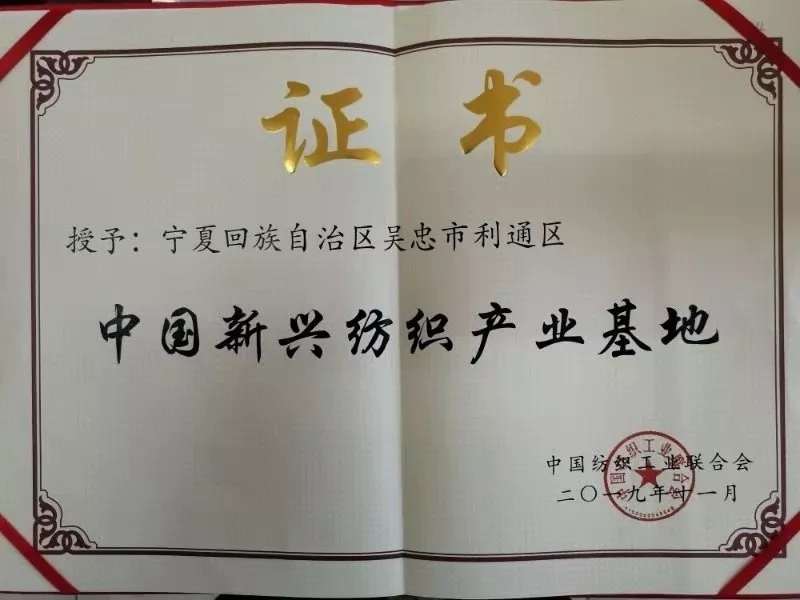 证书
授予：宁夏回族自治区吴忠市利通区
中国新兴纺织产业基地
中国纺织工业联合会
二〇一九年十一月